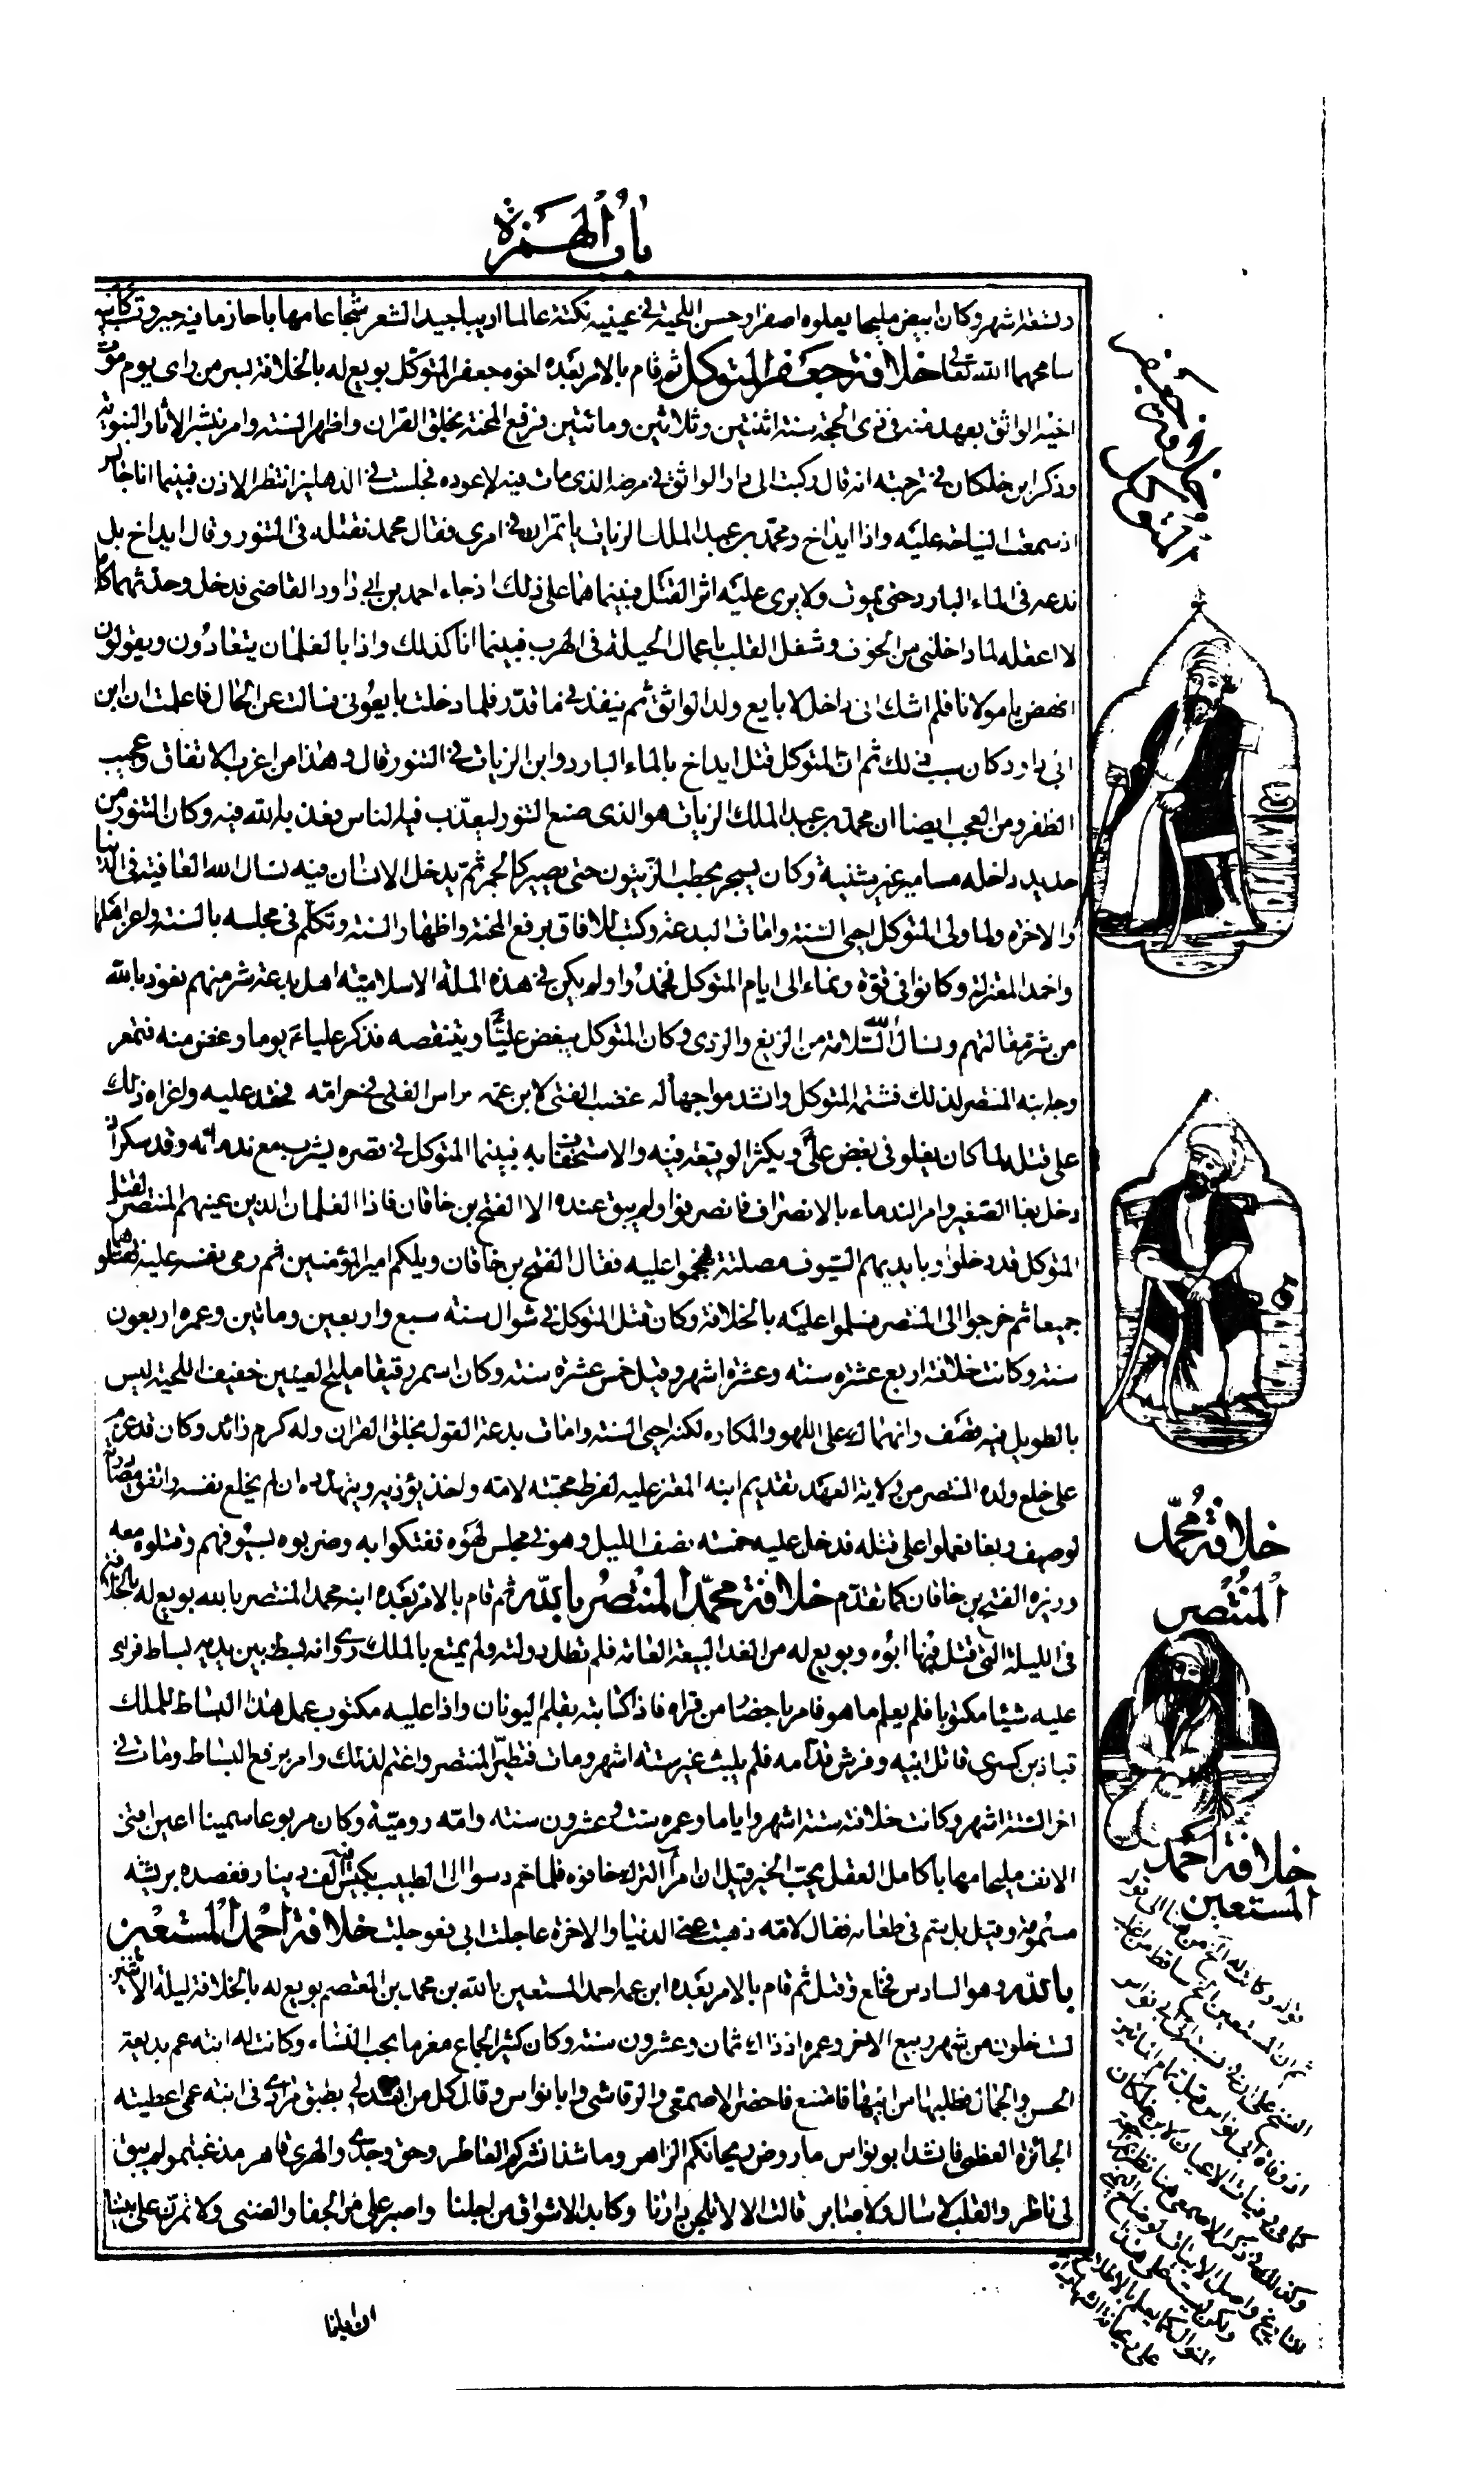 باب الهمزة
وتسعة اشهر وكان ابيض مليحا يعلوه اصفرار حسن اللحية في عينيه نكتة عالما اديبا جيد الشعر شجاعا مهابا حازما فيه جبروت كابيه
سامحهما الله تعالى خلافة جعفر المتوكل ثم قام بالامر بعده اخوه جعفر المتوكل بويع له بالخلافة بسر من راى يوم موت
اخيه الواثق بعهد منه في ذى الحجة سنة اثنتين وثلاثين ومائتين فرفع المحنة بخلق القرآن واظهر السنه وامر بنشر الاثار النبوية
وذكر ابن خلكان في ترجمته انه قال ركبت الى دار الواثق في مرضه الذى مات فيه لاعوده فجلست في الدهليز انتظر الاذن فبينما انا جالس
اذ سمعت النياحة عليه واذا ايداخ ومحمد بن عبد الملك الزيات ياتمران في امرى فقال محمد نقتله في التنور وقال ايداخ بل
ندعه في الماء البارد حتى يموت ولا يرى عليه اثر القتل فبينما هما على ذلك اذ جاء احمد بن ابي داود القاضى فدخل وحدثهما كلاما
لا اعقله لما داخلنى من الخوف وشغل القلب باعمال الحيلة في الهرب فبينما انا كذلك واذا بالغلمان يتعادون ويقولون
انهض يا مولانا فلم اشك انى داخل لابايع ولد الواثق ثم ينفذ في ما قدر فلما دخلت بايعونى فسالت عن الحال فاعلمت ان ابن
ابي داود كان سبب ذلك ثم ان المتوكل قتل ايداخ بالماء البارد وابن الزيات في التنور قال وهذا من اغرب الاتفاق وعجيب
الظفر ومن العجب ايضا ان محمد بن عبد الملك الزيات هو الذى صنع التنور ليعذب فيه الناس فعذبه الله فيه وكان التنور من
حديد داخله مسامير غير مثنية وكان يسجر بحطب الزيتون حتى يصير كالجمر ثم يدخل الانسان فيه نسال الله العافية في الدنيا
والاخرة ولما ولى المتوكل احيى السنة وامات البدعة وكتب للافاق برفع المحنة واظهار السنة وتكلم في مجلسه بالسنة واعز اهلها
واخمد المعتزلة وكانوا في قوة ونماء الى ايام المتوكل فخمدوا ولم يكن في هذه الملة الاسلامية اهل بدعة شر منهم نعوذ بالله
من شر مقالتهم ونسال الله السلامة من الزيغ والردى وكان المتوكل يبغض عليا ويتنقصه فذكر عليا يوما وغض منه فتمعر
وجه ابنه المنتصر لذلك فشتمه المتوكل وانشد مواجها له غضب الفتى لابن عمه راس الفتى في حرامه فحقد عليه واغراه ذلك
على قتله لما كان يغلو في بغض على ويكثر الوقيعة فيه والاستخفاف به فبينما المتوكل في قصره يشرب مع ندمائه وقد سكر اذ
دخل بغا الصغير وامر الندماء بالانصراف فانصرفوا ولم يبق عنده الا الفتح بن خاقان فاذا الغلمان الذين عينهم المنتصر لقتل
المتوكل قد دخلوا وبايديهم السيوف مصلتة فهجموا عليه فقال الفتح بن خاقان ويلكم امير المؤمنين ثم رمى بنفسه عليه فقتلوهما
جميعا ثم خرجوا الى المنتصر فسلموا عليه بالخلافة وكان قتل المتوكل في شوال سنة سبع واربعين ومائتين وعمره اربعون
سنة وكانت خلافته اربع عشرة سنة وعشرة اشهر وقيل خمس عشرة سنة وكان اسمر رقيقا مليح العينين خفيف اللحية ليس
بالطويل فيه قصف وانهماك على اللهو والمكاره لكنه احيى السنة وامات بدعة القول بخلق القران وله كرم زائد وكان قد عزم
على خلع ولده المنتصر من ولاية العهد بتقديم ابنه المعتز عليه لفرط محبته لامه واخذ يؤذيه ويتهدده ان لم يخلع نفسه واتفق مصادرة
لوصيف وبغا فعملوا على قتله فدخل عليه خمسة نصف الليل وهو في مجلس لهوه ففتكوا به وضربوه بسيوفهم وقتلوه معه
وزيره الفتح بن خاقان كما تقدم خلافة محمد المنتصر بالله ثم قام بالامر بعده ابنه محمد المنتصر بالله بويع له بالخلافة
في الليلة التي قتل فيها ابوه وبويع له من الغد البيعة العامة فلم تطل دولته ولم يمتع بالملك روى انه بسط بين يديه بساط فراى
عليه شيئا مكتوبا فلم يعلم ما هو فامر باحضار من قراه فاذا كتابته بقلم اليونان واذا عليه مكتوب عمل هذا البساط للملك
قباذ بن كسرى قاتل ابيه وفرش قدامه فلم يلبث غير ستة اشهر ومات فتطير المنتصر واغتم لذلك وامر برفع البساط ومات في
اخر الستة اشهر وكانت خلافته ستة اشهر واياما وعمره ست وعشرون سنة وامه رومية وكان مربوعا سمينا اعين اقنى
الانف مليحا مهابا كامل العقل يحب الخير قيل ان امراء الترك خافوه فلما حم دسوا الى الطبيب بكيس فيه الف دينار ففصده بريشة
مسمومة وقيل بل سم في طعام فقال لامه ذهبت عنى الدنيا والاخرة عاجلت ابى فعوجلت خلافة احمد المستعين
بالله وهو السادس فخلع وقتل ثم قام بالامر بعده ابن عمه احمد المستعين بالله بن محمد بن المعتصم بويع له بالخلافة ليلة الاثنين
لست خلون من شهر ربيع الاخر وعمره اذ ذاك ثمان وعشرون سنة وكان كثير الجماع مغرما بحب النساء وكانت له ابنة عم بديعة
الحسن والجمال فطلبها من ابيها فامتنع فاحضر الاصمعى والرقاشى وابا نواس وقال كل من انشد لى بطبق مرادى في ابنة عمى اعطيته
الجائزة العظمى فانشد ابو نواس ما روض ريحانكم الزاهر وما شذا نشركم العاطر وحق وجدى والهوى قاهر مذ غبتم لم يبق
لى ناظر والقلب لا سال ولا صابر قالت الا لا تلجن دارنا وكابد الاشواق من اجلنا واصبر على مر الجفا والضنى ولا تمرن على بيتنا
ان ابانا
خلافة جعفر
المتوكل
خلافة محمد
المنتصر
خلافة احمد
المستعين